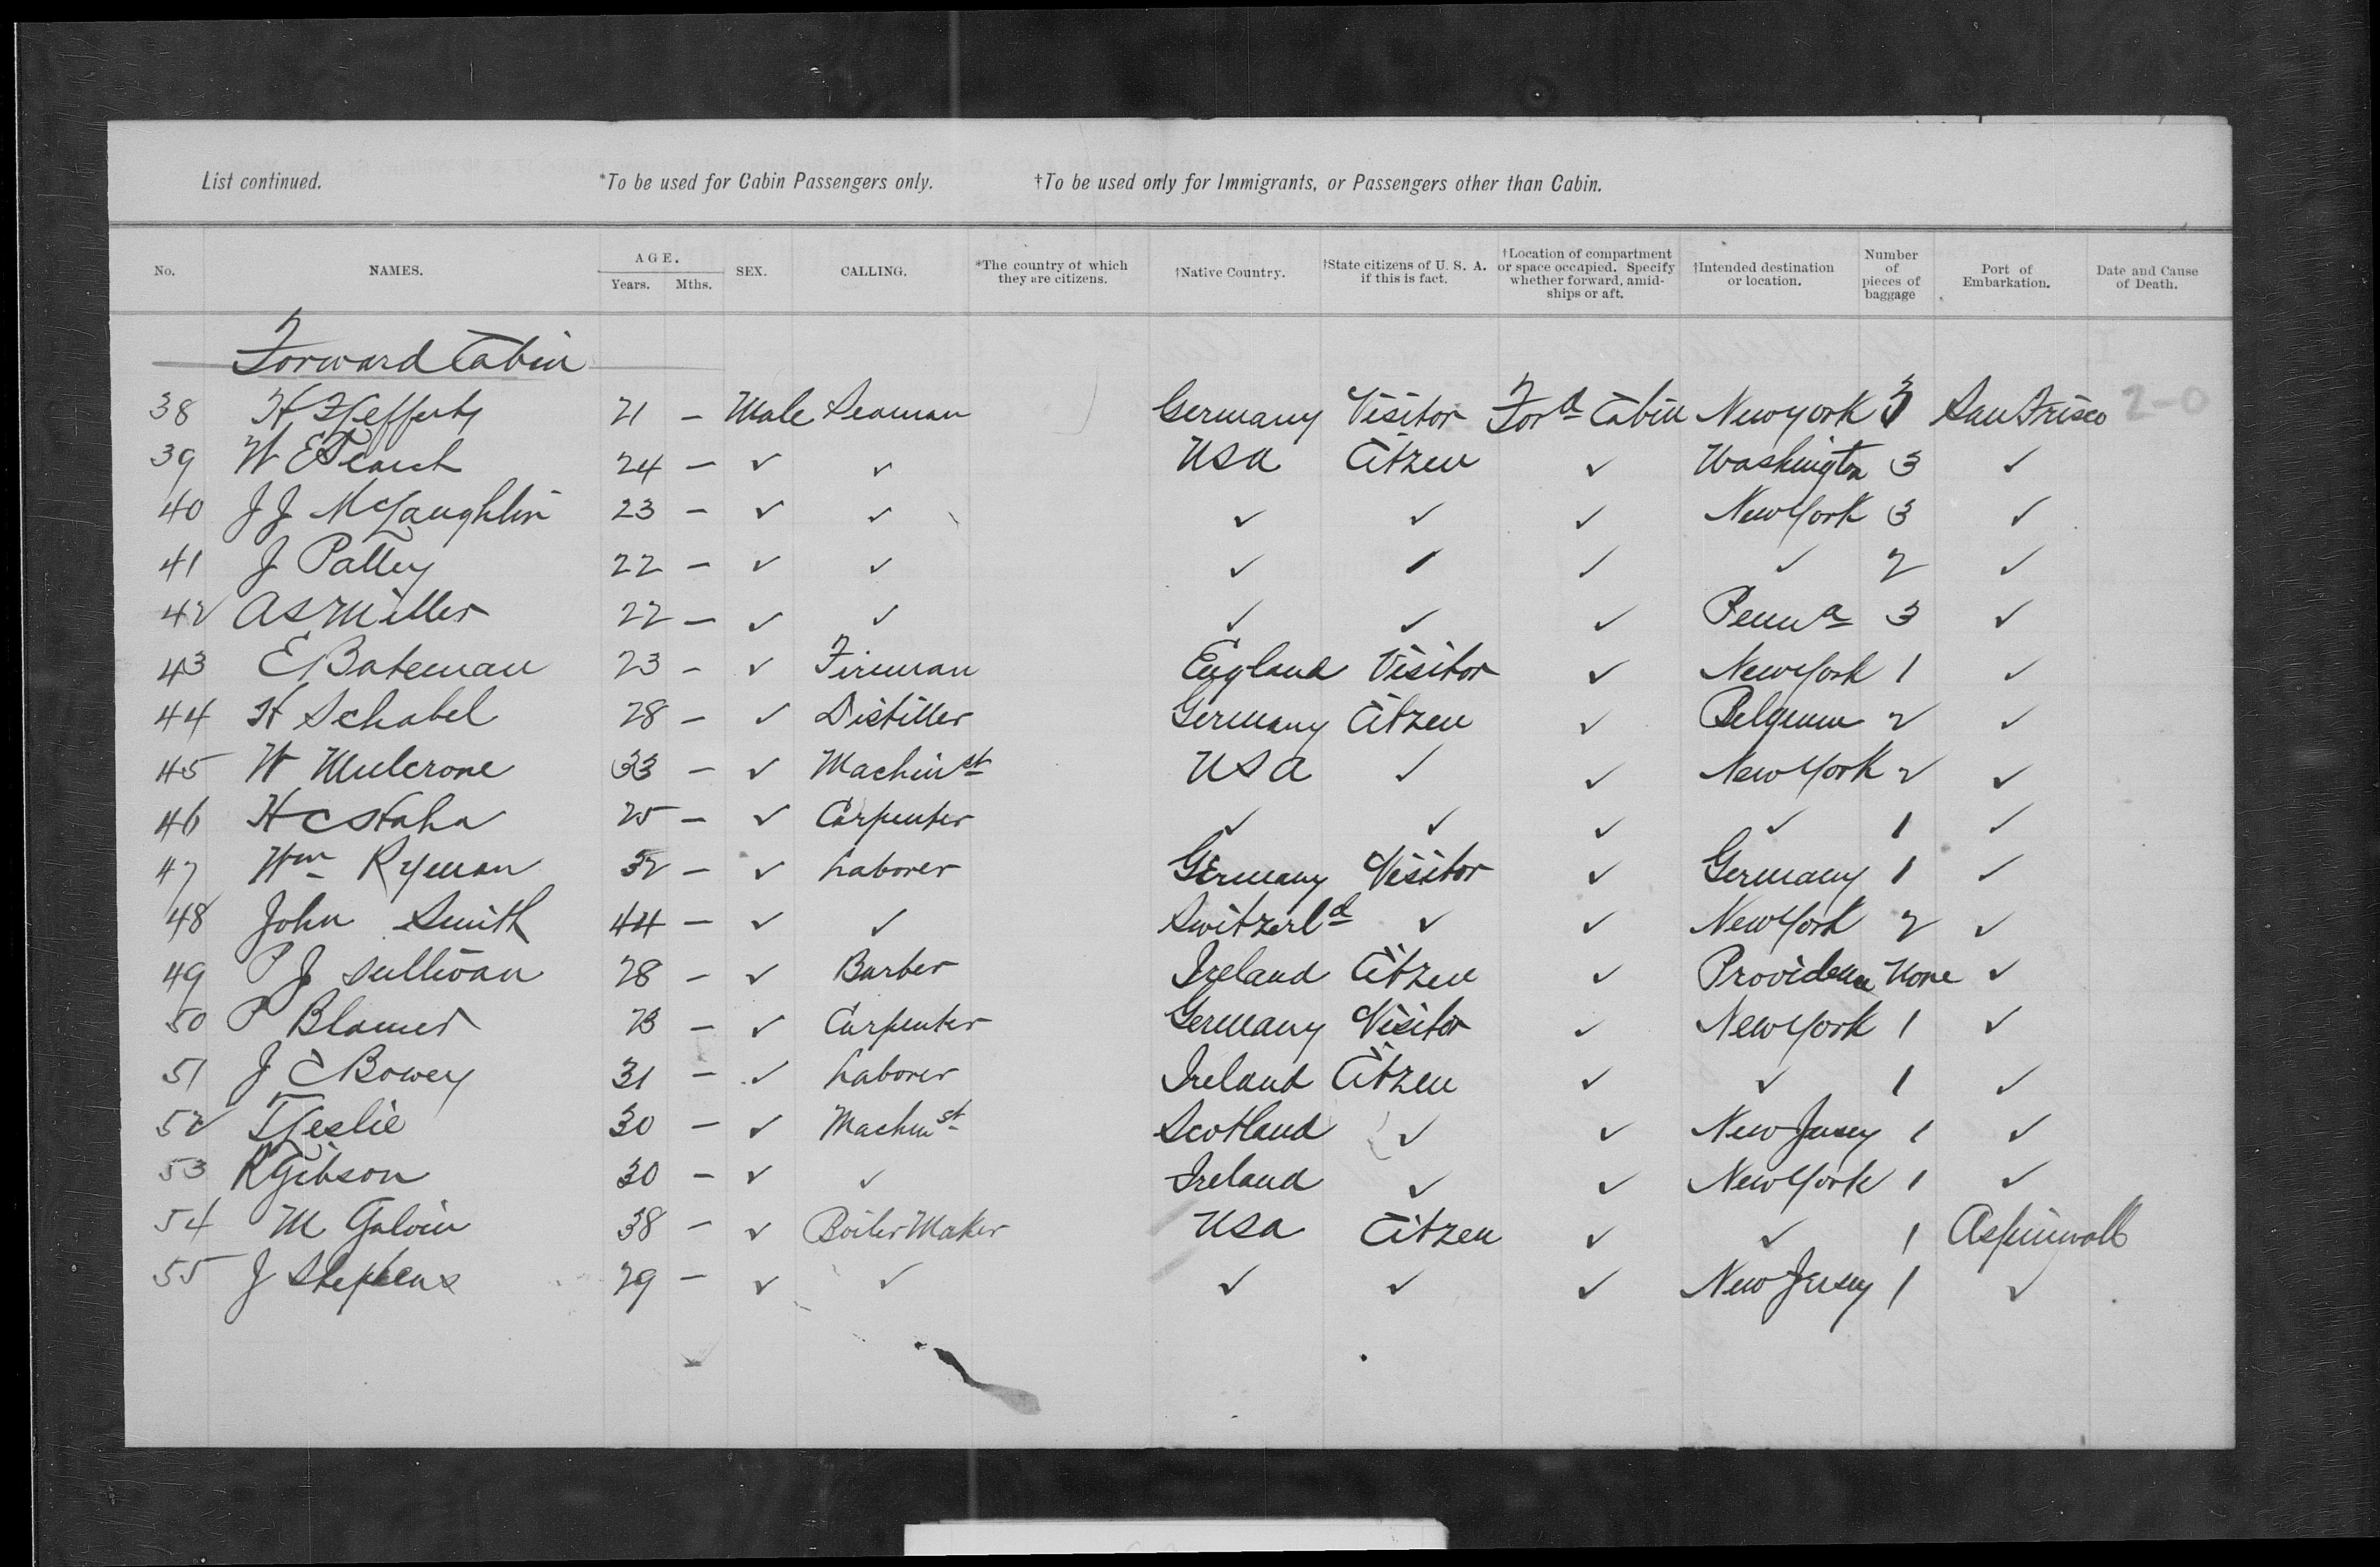 List continued. *To be used for Cabin Passengers only. †To be used only for Immigrants, or Passengers other than Cabin.
No. NAMES. AGE. Years. Mths. SEX. CALLING. *The country of which they are citizens. †Native Country. †State citizens of U. S. A. if this is fact. †Location of compartment or space occupied. Specify whether forward, amidships or aft. †Intended destination or location. Number of pieces of baggage Port of Embarkation. Date and Cause of Death.
Forward Cabin
38 H 21 — Male Seaman Germany Visitor Ford Cabin New york 3 San Frisco 2-0
39 W E 24 — ✓ ✓ USA Citzen ✓ Washington 3 ✓
40 J J McLaughlin 23 — ✓ ✓ ✓ ✓ ✓ New York 3 ✓
41 J Palley 22 — ✓ ✓ ✓ ✓ ✓ ✓ 2 ✓
42 A S Miller 22 — ✓ ✓ ✓ ✓ ✓ Penna 3 ✓
43 E Bateman 23 — ✓ Fireman England Visitor ✓ New York 1 ✓
44 H Schabel 28 — ✓ Distiller Germany Citzen ✓ Belgium 2 ✓
45 W Mulcrone 33 — ✓ Machinst USA ✓ ✓ New York 2 ✓
46 H C Staha 25 — ✓ Carpenter ✓ ✓ ✓ ✓ 1 ✓
47 Wm Ryman 32 — ✓ Laborer Germany Visitor ✓ Germany 1 ✓
48 John Smith 44 — ✓ ✓ Switzerld ✓ ✓ New York 2 ✓
49 P J Sullivan 28 — ✓ Barber Ireland Citzen ✓ Providence None ✓
50 P Blamer — ✓ Carpenter Germany Visitor ✓ New York 1 ✓
51 J C Bowey 31 — ✓ Laborer Ireland Citzen ✓ ✓ 1 ✓
52 T Leslie 30 — ✓ Machinst Scotland ✓ ✓ New Jersey 1 ✓
53 R Gibson 30 — ✓ ✓ Ireland ✓ ✓ New York 1 ✓
54 M Galvin 38 — ✓ Boiler Maker USA Citzen ✓ ✓ 1 Aspinwall
55 J Stephens 29 — ✓ ✓ ✓ ✓ ✓ New Jersey 1 ✓